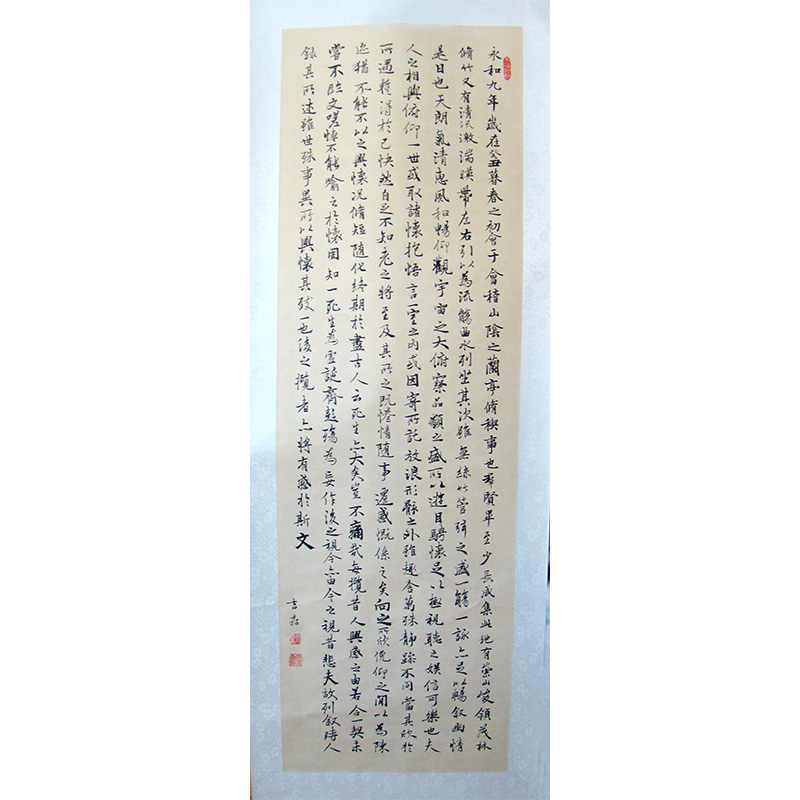 永和九年歲在癸丑暮春之初會于會稽山陰之蘭亭脩稧事也羣賢畢至少長咸集此地有崇山峻領茂林
脩竹又有清流激湍暎帶左右引以為流觴曲水列坐其次雖無絲竹管弦之盛一觴一詠亦足以暢叙幽情
是日也天朗氣清惠風和暢仰觀宇宙之大俯察品類之盛所以遊目騁懷足以極視聽之娛信可樂也夫
人之相與俯仰一世或取諸懷抱悟言一室之內或因寄所託放浪形骸之外雖趣舍萬殊靜躁不同當其欣於
所遇暫得於己快然自足不知老之將至及其所之既惓情隨事遷感慨係之矣向之所欣俛仰之閒以為陳
迹猶不能不以之興懷況脩短隨化終期於盡古人云死生亦大矣豈不痛哉每攬昔人興感之由若合一契未
嘗不臨文嗟悼不能喻之於懷固知一死生為虛誕齊彭殤為妄作後之視今亦由今之視昔悲夫故列叙時人
錄其所述雖世殊事異所以興懷其致一也後之攬者亦將有感於斯文